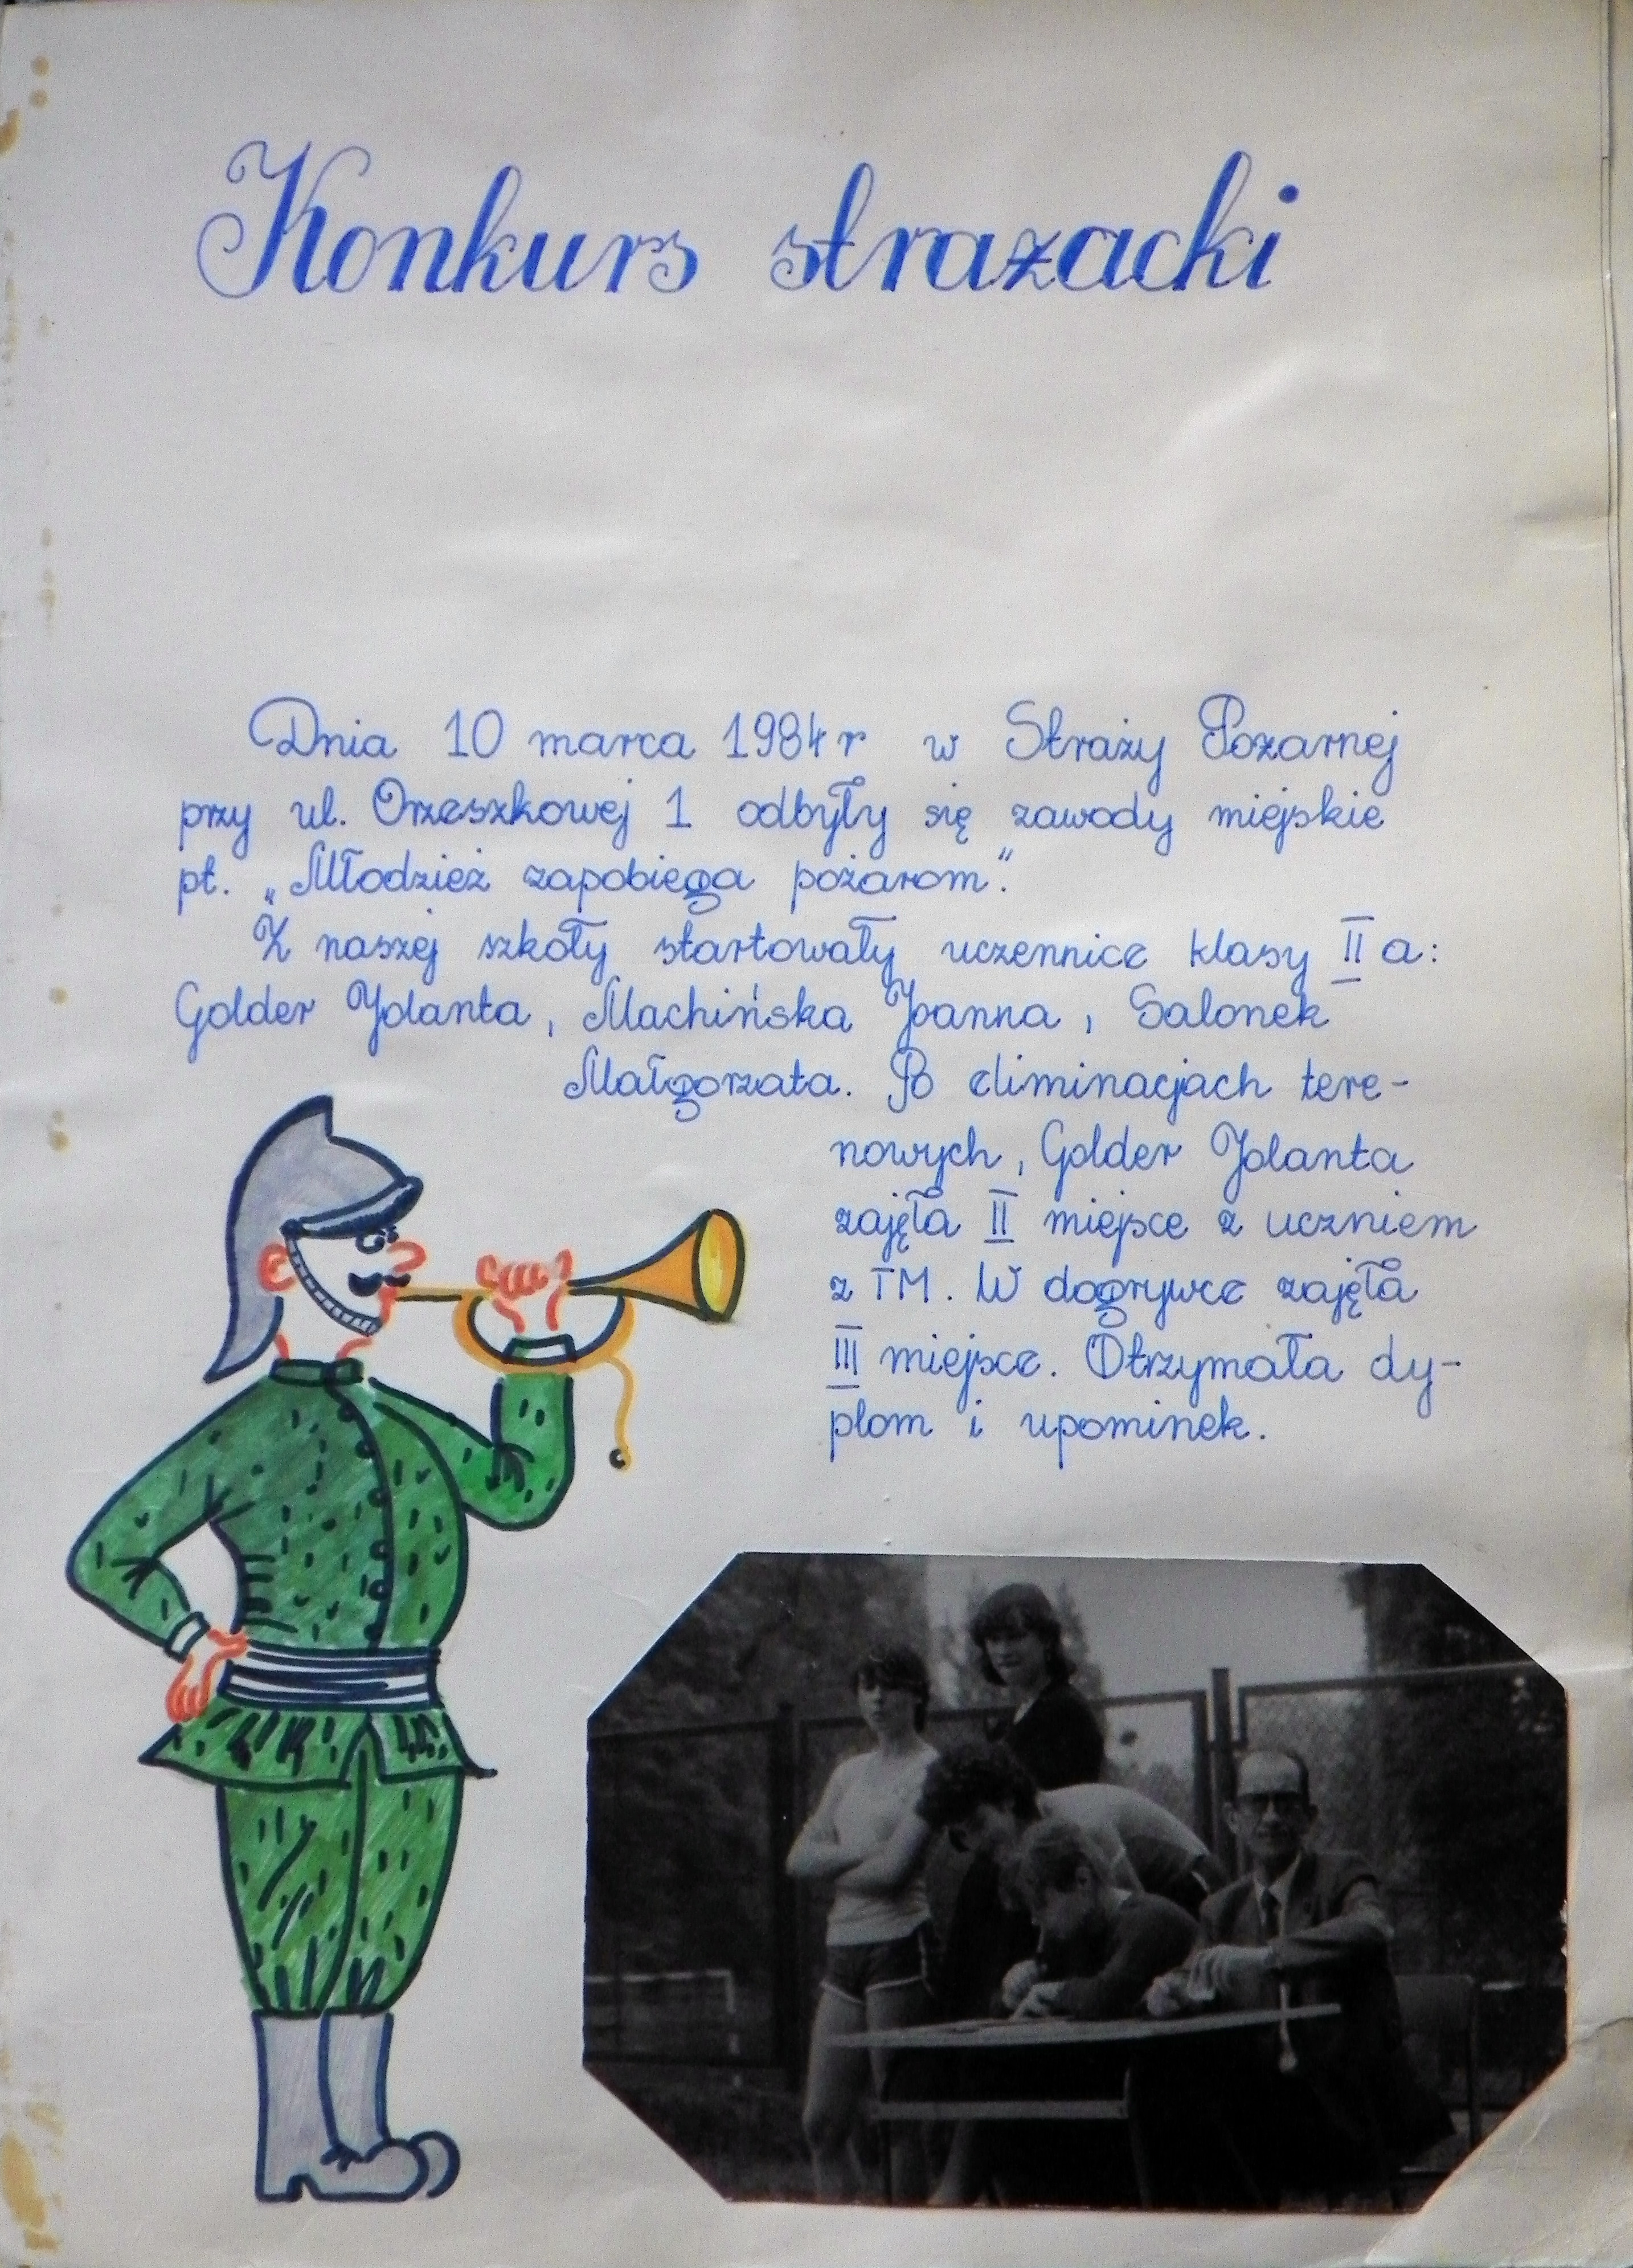 Konkurs strażacki
Dnia 10 marca 1984 r w Straży Pożarnej
przy ul. Orzeszkowej 1 odbyły się zawody miejskie
pt. „Młodzież zapobiega pożarom”.
Z naszej szkoły startowały uczennice klasy II a:
Golder Jolanta, Machińska Joanna, Salonek
Małgorzata. Po eliminacjach tere-
nowych, Golder Jolanta
zajęła II miejsce z uczniem
z TM. W dogrywce zajęła
III miejsce. Otrzymała dy-
plom i upominek.